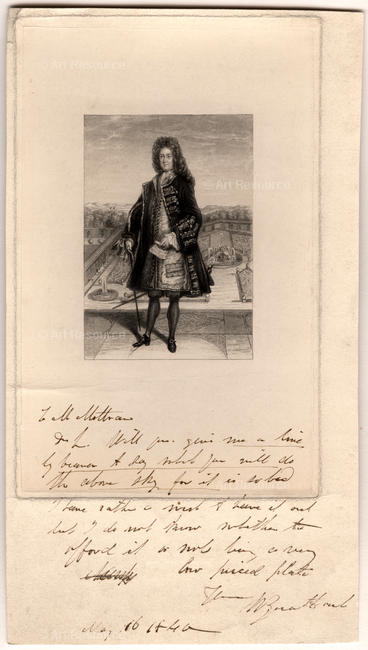 © Art Resource
© Art Resource
© Art Resource
© Art Resource
To M Mottram
Will you give me a line
by bearer to say what you will do
the above sky for it is so bad
I have rather a wish to have it out
but I do not know whether the
afford it or not being a very
low priced plate
May 16 1840